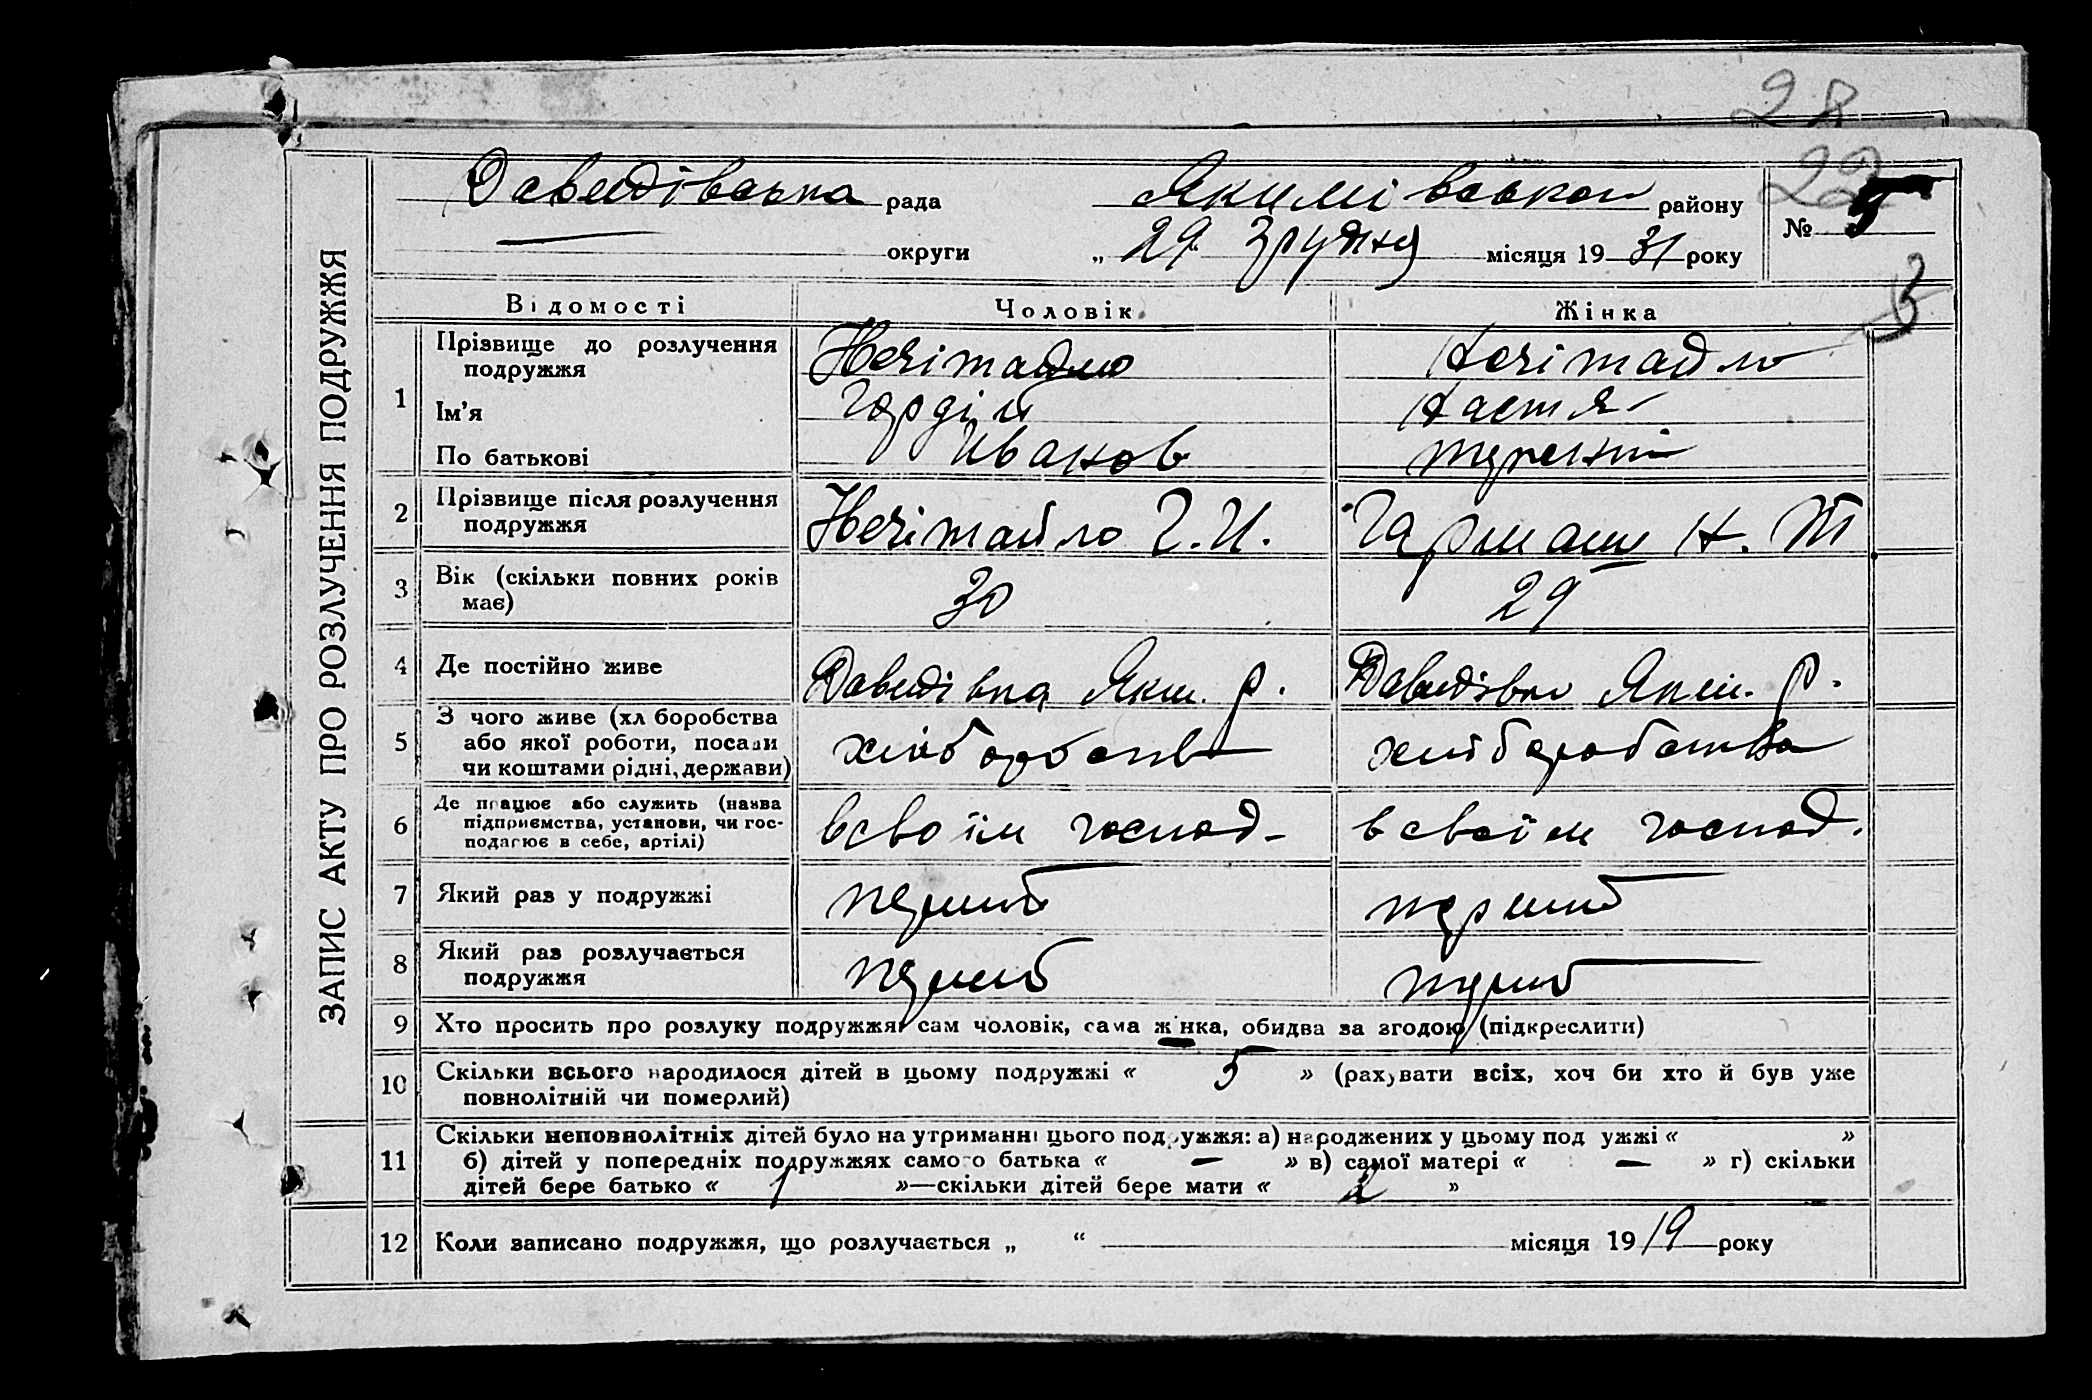 28
22
ЗАПИС АКТУ ПРО РОЗЛУЧЕННЯ ПОДРУЖЖЯ
Давидівська рада Якимівськой району
— округи „ 29 Згрудня місяця 19 31 року
№ 5
3
Відомості Чоловік Жінка
1 Прізвище до розлучення подружжя Нечітайло Нечітайло
Ім'я Гордій Настя
По батькові Иванов
2 Прізвище після розлучення подружжя Нечітайло Г. И. Гармаш Н. Т.
3 Вік (скільки повних років має) 30 29
4 Де постійно живе Давидівка Яким. р. Давидівка Яким. р.
5 З чого живе (хліборобства або якої роботи, посади чи коштами рідні, держави) хліборобство хлібаробства
6 Де працює або служить (назва підприємства, установи, чи господарює в себе, артілі) в своїм господ- в своїм господ.
7 Який раз у подружжі перший перший
8 Який раз розлучається подружжя перший перший
9 Хто просить про розлуку подружжя: сам чоловік, сама жінка, обидва за згодою (підкреслити)
10 Скільки всього народилося дітей в цьому подружжі « 5 » (рахувати всіх, хоч би хто й був уже
повнолітній чи померлий)
11 Скільки неповнолітніх дітей було на утриманні цього подружжя: а) народжених у цьому подружжі « »
б) дітей у попередніх подружжях самого батька « — » в) самої матері « — » г) скільки
дітей бере батько « 1 »—скільки дітей бере мати « 2 »
12 Коли записано подружжя, що розлучається „ “ місяця 19 19 року